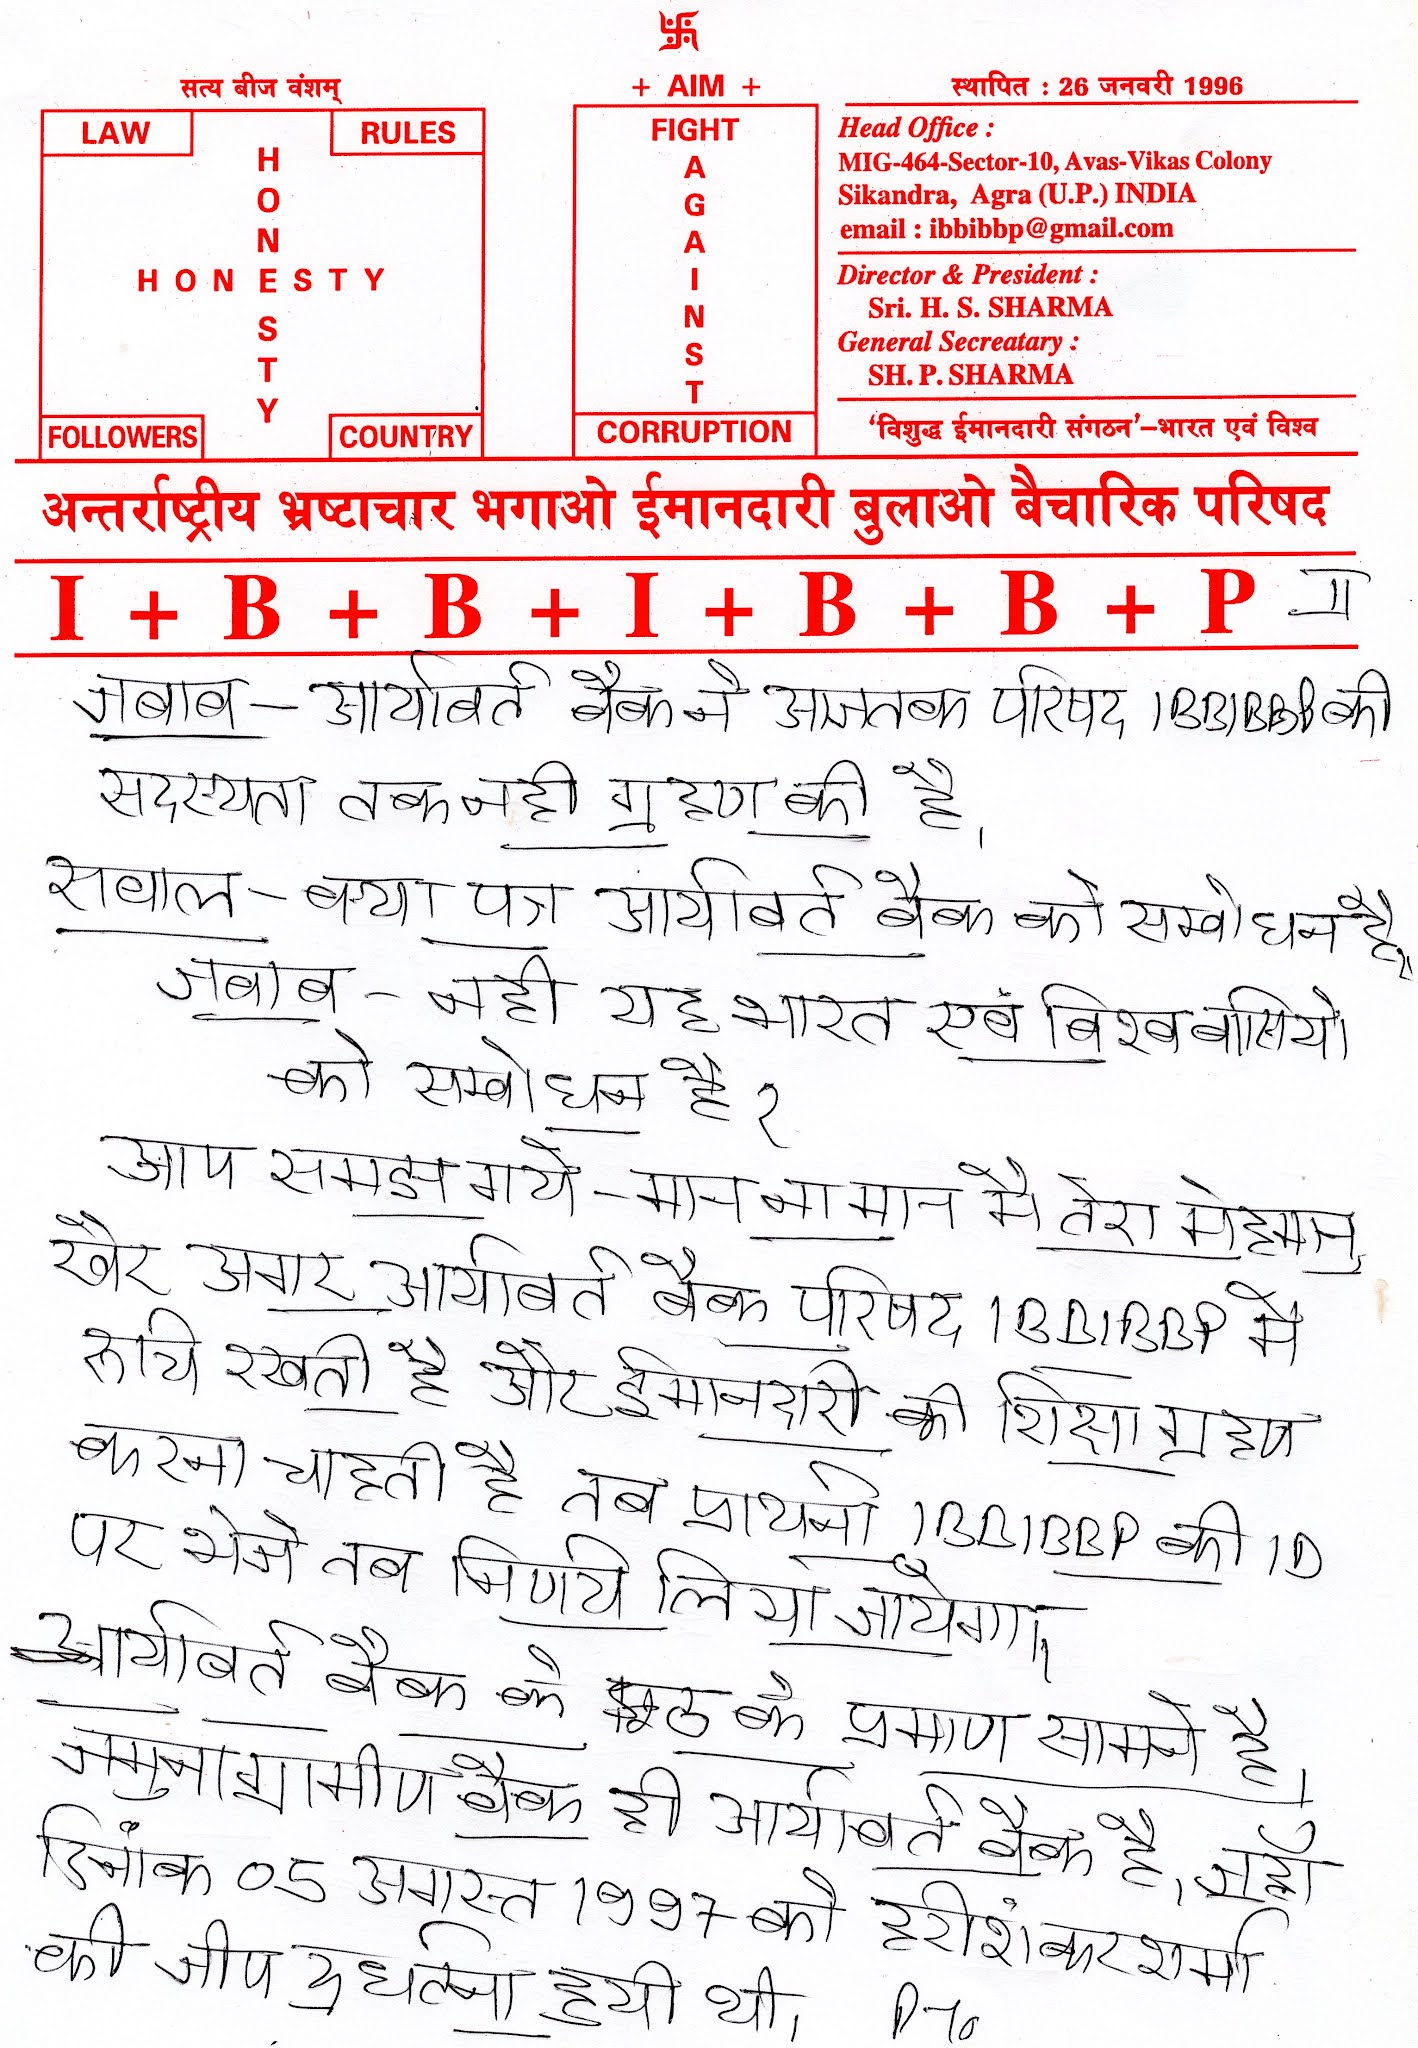 सत्य बीज वंशम्
LAW
RULES
HONESTY
HONESTY
FOLLOWERS
COUNTRY
+ AIM +
FIGHT
AGAINST
CORRUPTION
स्थापित : 26 जनवरी 1996
Head Office :
MIG-464-Sector-10, Avas-Vikas Colony
Sikandra, Agra (U.P.) INDIA
email : ibbibbp@gmail.com
Director & President :
Sri. H. S. SHARMA
General Secreatary :
SH. P. SHARMA
'विशुद्ध ईमानदारी संगठन'–भारत एवं विश्व
अन्तर्राष्ट्रीय भ्रष्टाचार भगाओ ईमानदारी बुलाओ बैचारिक परिषद
I + B + B + I + B + B + P
जबाब – आर्याबर्त बैंक ने आजतक परिषद IBBIBBP की
सदस्यता तक नही ग्रहण की है,
सवाल – क्या पत्र आर्याबर्त बैंक को सम्बोधन है?
जबाब – नही यह भारत एवं बिश्वबासियो
को सम्बोधन है?
आप समझ गये – मान ना मान मै तेरा मेहमान,
खैर अगर आर्याबर्त बैंक परिषद IBBIBBP मे
रूचि रखती है और ईमानदारी की शिक्षा ग्रहण
करना चाहती है तब प्रार्थना IBBIBBP की ID
पर भेजे तब निर्णय लिया जायेगा।
आर्याबर्त बैंक के झूठ के प्रमाण सामने है,
जमुना ग्रामीण बैंक ही आर्याबर्त बैंक है, जहाँ
दिनांक 05 अगस्त 1997 को हरीशंकर शर्मा
की जीप दुर्घटना हुयी थी, PTO